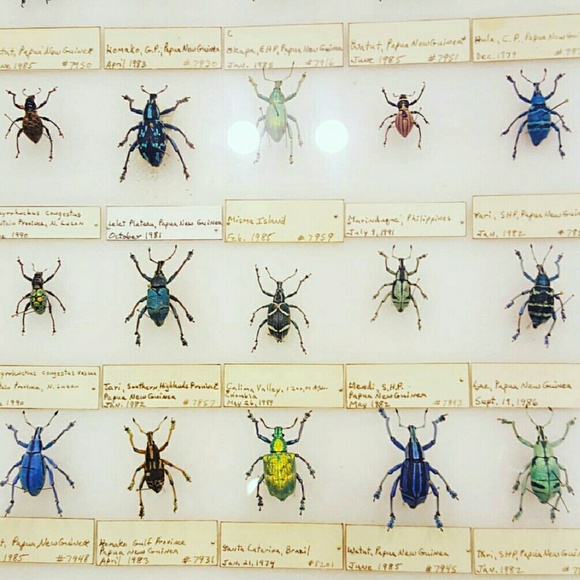 Watut, Papua New Guinea
June 1985 #7950
Komako, G.P., Papua New Guinea
April 1983 #7930
Okapa, EHP, Papua New Guinea
Jan. 1985 #7916
Watut, Papua New Guinea
June 1985 #7951
Hula, C.P., Papua New
Dec. 1979
congestus
Province, N. Luzon
1990
Lelet Plateau, Papua New Guinea
October 1981
Misima Island
Feb. 1985 #7959
Marinduque, Philippines
July 3, 1991
Tari, SHP, Papua New Guin
Jan. 1982
congestus
Province, N. Luzon
1990
Tari, Southern Highlands Province
Papua New Guinea
Jan. 1982 #7857
Calima Valley, 1200 m
Colombia
May 26, 1989
Mendi, S.H.P.
Papua New Guinea
May 1982 #7843
Lae, Papua New Guinea
Sept. 19, 1986
t, Papua New Guinea
1985 #7948
Komako Gulf Province
Papua New Guinea
April 1983 #7931
Santa Catarina, Brazil
Jan. 21, 1979 #8201
Watut, Papua New Guinea
June 1985 #7945
Tari, SHP, Papua New Guin
Jan. 1982